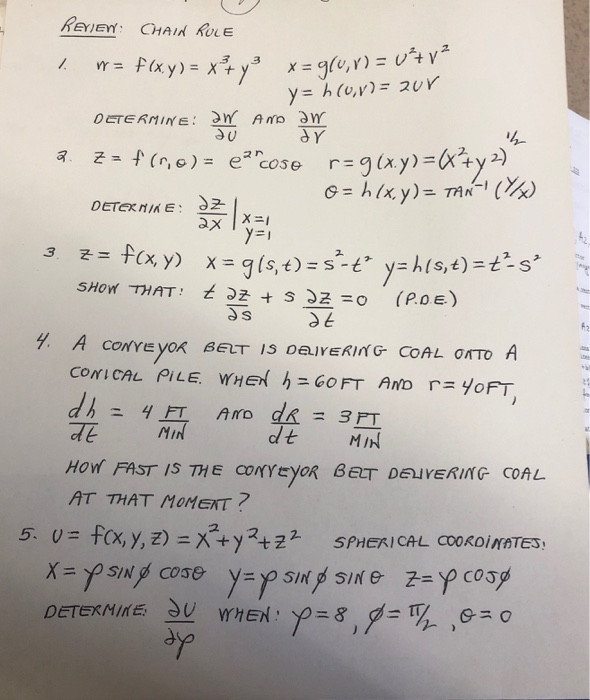 REVIEW: CHAIN RULE
1. w = f(x,y) = x³+y³ x = g(u,v) = u²+v²
y = h(u,v) = 2uv
DETERMINE: ∂w/∂u AND ∂w/∂v
2. z = f(r,θ) = e^{2r} cosθ r = g(x,y) = (x²+y²)^{1/2}
θ = h(x,y) = TAN⁻¹(y/x)
DETERMINE: ∂z/∂x | x=1 y=1
3. z = f(x,y) x = g(s,t) = s²-t² y = h(s,t) = t²-s²
SHOW THAT: t ∂z/∂s + s ∂z/∂t = 0 (P.D.E.)
4. A CONVEYOR BELT IS DELIVERING COAL ONTO A
CONICAL PILE. WHEN h = 60FT AND r = 40FT,
dh/dt = 4 FT/MIN AND dR/dt = 3 FT/MIN
HOW FAST IS THE CONVEYOR BELT DELIVERING COAL
AT THAT MOMENT?
5. U = f(x,y,z) = x²+y²+z² SPHERICAL COORDINATES:
x = ρ SINφ COSθ y = ρ SINφ SINθ z = ρ COSφ
DETERMINE: ∂U/∂ρ WHEN: ρ=8, φ=π/2, θ=0